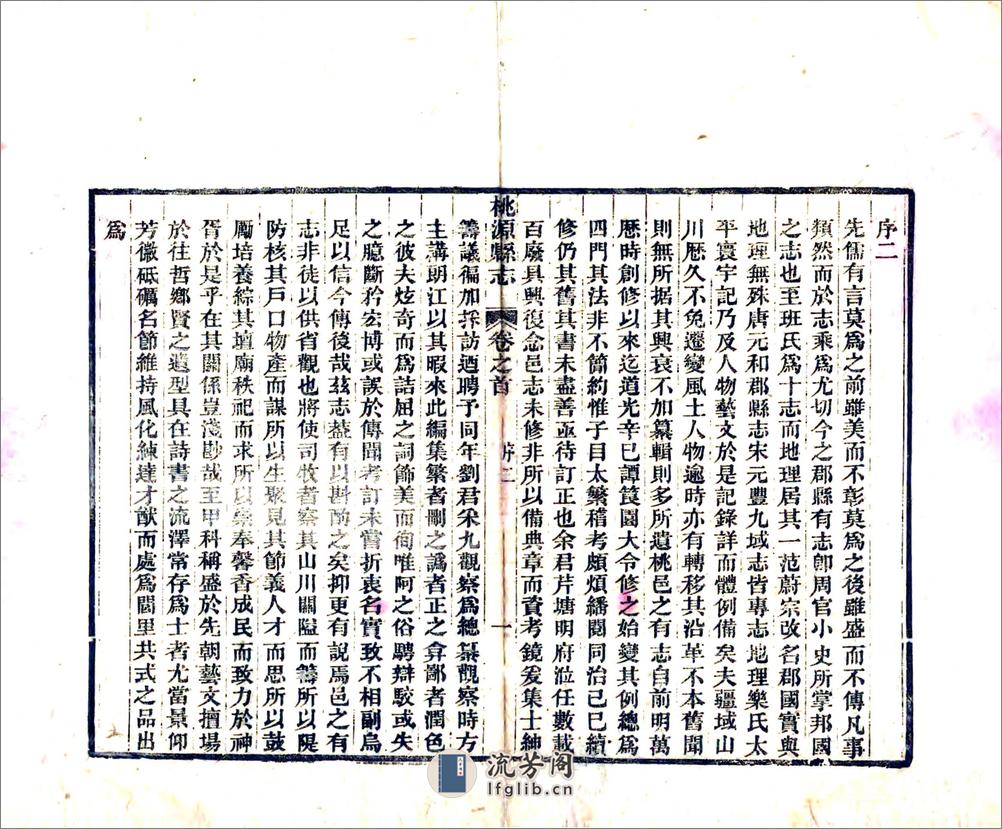 序二
先儒有言莫爲之前雖美而不彰莫爲之後雖盛而不傳凡事
類然而於志乘爲尤切今之郡縣有志卽周官小史所掌邦國
之志也至班氏爲十志而地理居其一范蔚宗改名郡國實與
地理無殊唐元和郡縣志宋元豐九域志皆專志地理樂氏太
平寰宇記乃及人物藝文於是記錄詳而體例備矣夫疆域山
川歷久不免遷變風土人物逾時亦有轉移其沿革不本舊聞
則無所据其興衰不加纂輯則多所遺桃邑之有志自前明萬
歷時創修以來迄道光辛巳譚篔園大令修之始變其例總爲
四門其法非不簡約惟子目太繁稽考頗煩繙閱同治己巳續
修仍其舊其書未盡善亟待訂正也余君芹塘明府涖任數載
百廢具興復念邑志未修非所以備典章而資考鏡爰集士紳
桃源縣志 卷之首 序二 一
籌議徧加採訪迺聘予同年劉君采九觀察爲總纂觀察時方
主講朗江以其暇來此編集繁者刪之譌者正之弇鄙者潤色
之彼夫炫奇而爲詰屈之詞飾美而徇唯阿之俗騁辯駁或失
之臆斷矜宏博或誤於傳聞考訂未嘗折衷名實致不相副烏
足以信今傳後哉茲志葢有以斟酌之矣抑更有說焉邑之有
志非徒以供省觀也將使司牧者察其山川關隘而籌所以隄
防核其戶口物產而謀所以生聚見其節義人才而思所以鼓
勵培養綜其壇廟秩祀而求所以崇奉馨香成民而致力於神
胥於是乎在其關係豈淺尠哉至甲科稱盛於先朝藝文擅場
於往哲鄉賢之遺型具在詩書之流澤常存爲士者尤當景仰
芳徽砥礪名節維持風化練達才猷而處爲閭里共式之品出
爲
流芳阁
lfglib.cn